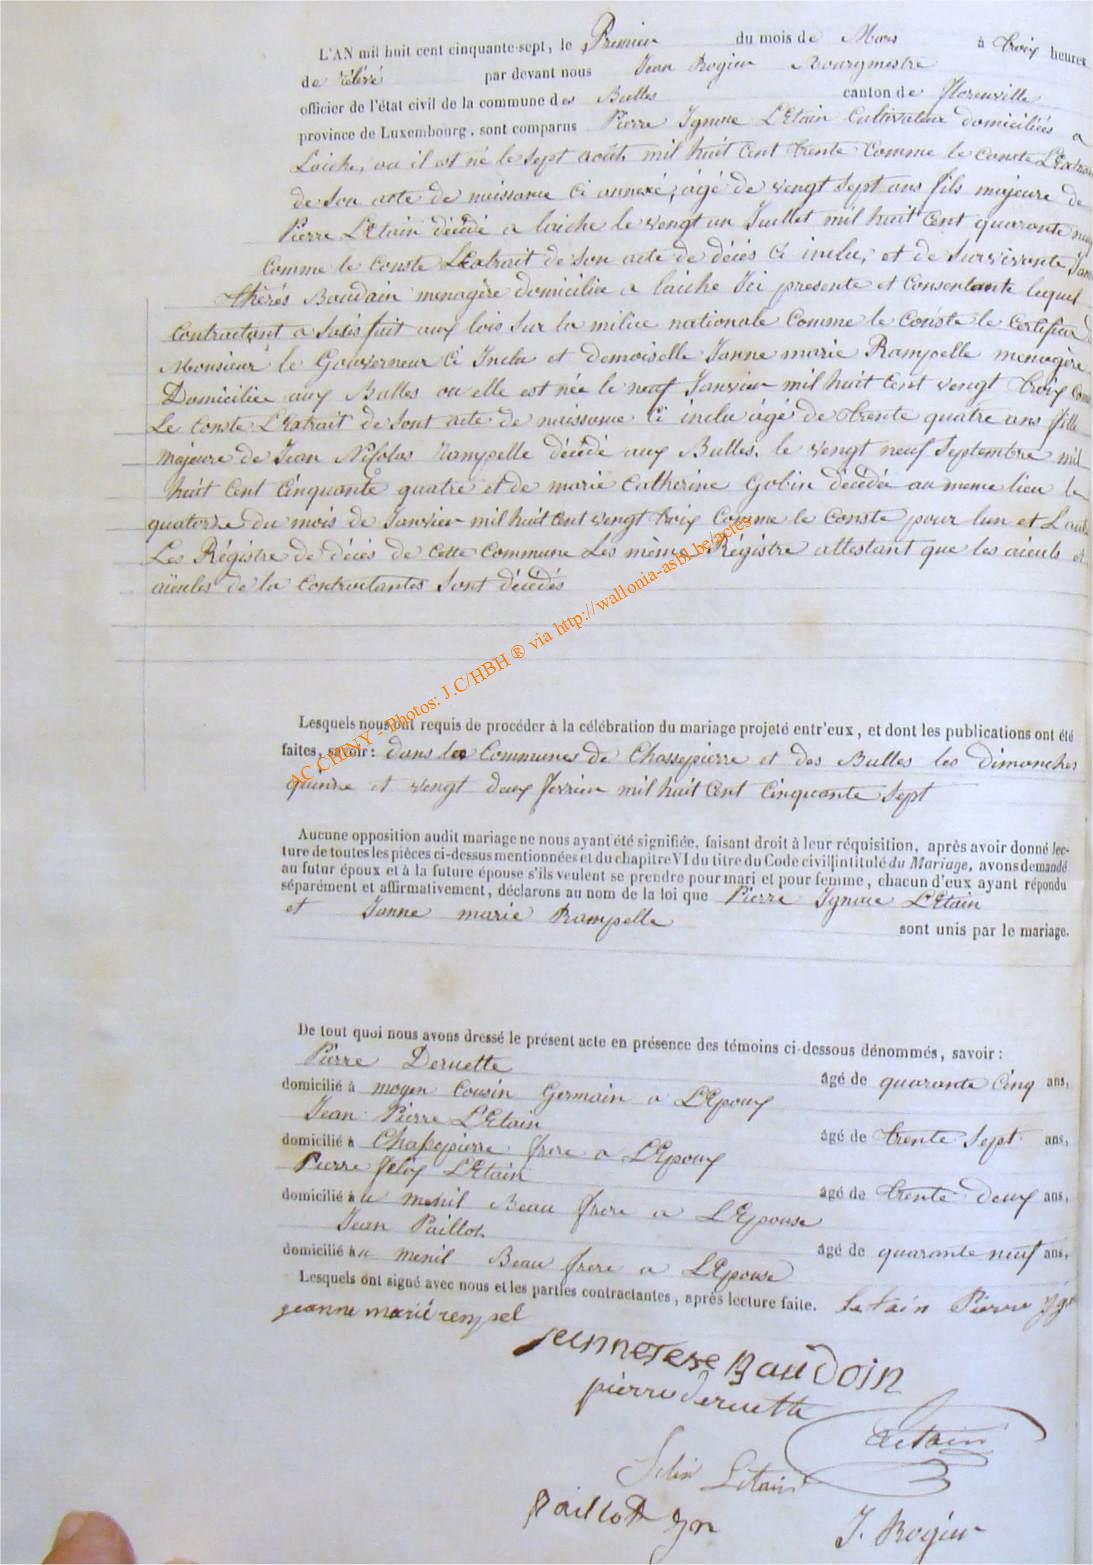 L'AN mil huit cent cinquante-sept, le Premier du mois de Mars à trois heures
de rélevé par devant nous Jean Rogier Bourgmestre
officier de l'état civil de la commune des Bulles canton de florenville
province de Luxembourg, sont comparus Pierre Ignace L'Etain Cultivateur domiciliés a
Laiche, ou il est né le sept août mil huit Cent trente Comme le conste L'Extrait
de son acte de naissance ci annexé, âgé de vengt sept ans fils majeure de
Pierre L'Etain décédé a laiche le vengt un Juillet mil huit Cent quarante neuf
Comme le conste L'Extrait de son acte de décés Ci inclu, et de Survivante Janne
thérés Baudain menagère domicilieé a laiche Ici presente et consentante lequel
contractant a Satisfait aux lois Sur la milice nationale Comme le conste le Certificat de
Monsieur le Gouverneur Ci Inclu et demoiselle Janne marie Rampelle menagère
Domiciliée aux Bulles ou elle est née le neuf Janvier mil huit Cent vengt troix Comme
Le conste L'Extrait de sont acte de naissance Ci inclu âgé de trente quatre ans fille
majeure de Jean Nicolas Rampelle décédé aux Bulles, le vengt neuf Septembre mil
huit Cent Cinquante quatre et de marie Catherine Gobin décédé au meme lieu le
quatorze du mois de Janvier mil huit Cent vengt troix Comme le conste pour lun et L'autre
Les Régistre de décés de cette commune Les mêmes Régistre attestant que les aieuls et
aïeules de la contractantes Sont décédés
AC CHINY - Photos: J.C/HBH ® via http://wallonia-asbl.be/actes
Lesquels nous ont requis de procéder à la célébration du mariage projeté entr'eux, et dont les publications ont été
faites, savoir: dans les Communes de Chassepierre et des Bulles les dimanches
quinze et vengt deux fevrier mil huit Cent Cinquante Sept
Aucune opposition audit mariage ne nous ayant été signifiée, faisant droit à leur réquisition, après avoir donné lec-
ture de toutes les pièces ci-dessus mentionnées et du chapitre VI du titre du Code civil intitulé du Mariage, avons demandé
au futur époux et à la future épouse s'ils veulent se prendre pour mari et pour femme, chacun d'eux ayant répondu
séparément et affirmativement, déclarons au nom de la loi que Pierre Ignace L'Etain
et Janne marie Rampelle sont unis par le mariage.
De tout quoi nous avons dressé le présent acte en présence des témoins ci-dessous dénommés, savoir:
Pierre Deruette âgé de quarante Cinq ans,
domicilié à moyen Cousin Germain a L'Epoux
Jean Pierre L'Etain âgé de trente Sept ans,
domicilié à Chassepierre frere a L'Epoux
Pierre feliy L'Etain âgé de trente deux ans,
domicilié au menil Beau frere a L'Epouse
Jean Paillot âgé de quarante neuf ans,
domicilié au menil Beau frere a L'Epouse
Lesquels ont signé avec nous et les parties contractantes, après lecture faite. Letain Pierre Ign
jeanne marie rempel
jeannetese Baudoin
pierre deruette
Letain
Felix Letain
Paillot Jon
J. Rogier